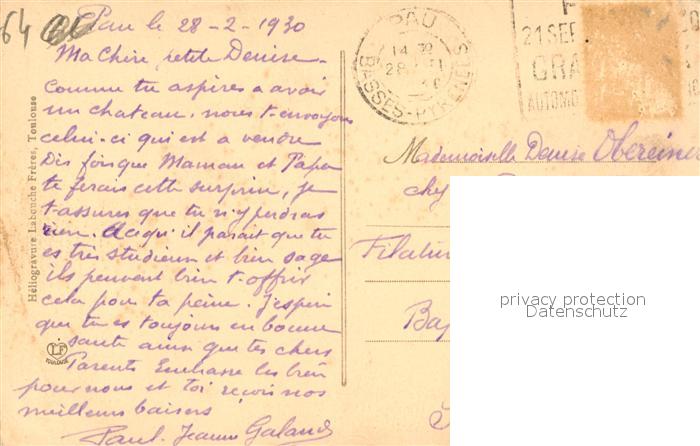 64
Pau le 28-2-1930
Ma Chère petite Denise-
Comme tu aspires a avoir
un chateau, nous t-envoyons
celui-ci qui est a vendre
Dès fois que Maman et Papa
te ferais cette surprise, je
t-assures que tu n'y perdras
rien. qu'il parait que tu
es très studieuse et bien sage
ils peuvent bien t-offrir
cela pour ta peine. J'espère
que tu es toujours en bonne
santé ainsi que tes chers
Parents Embrasse les bien
pour nous et toi reçois nos
meilleurs baisers
Paul. Jeanne Galand
Héliogravure Labouche Frères, Toulouse
LF
TOULOUSE
PAU
14 30
28 - II
30
BASSES-PYRENEES
21 SEP
GRA
AUTOMO
Mademoiselle Denise Obereiner
chez
Filatur
Ba
privacy protection
Datenschutz